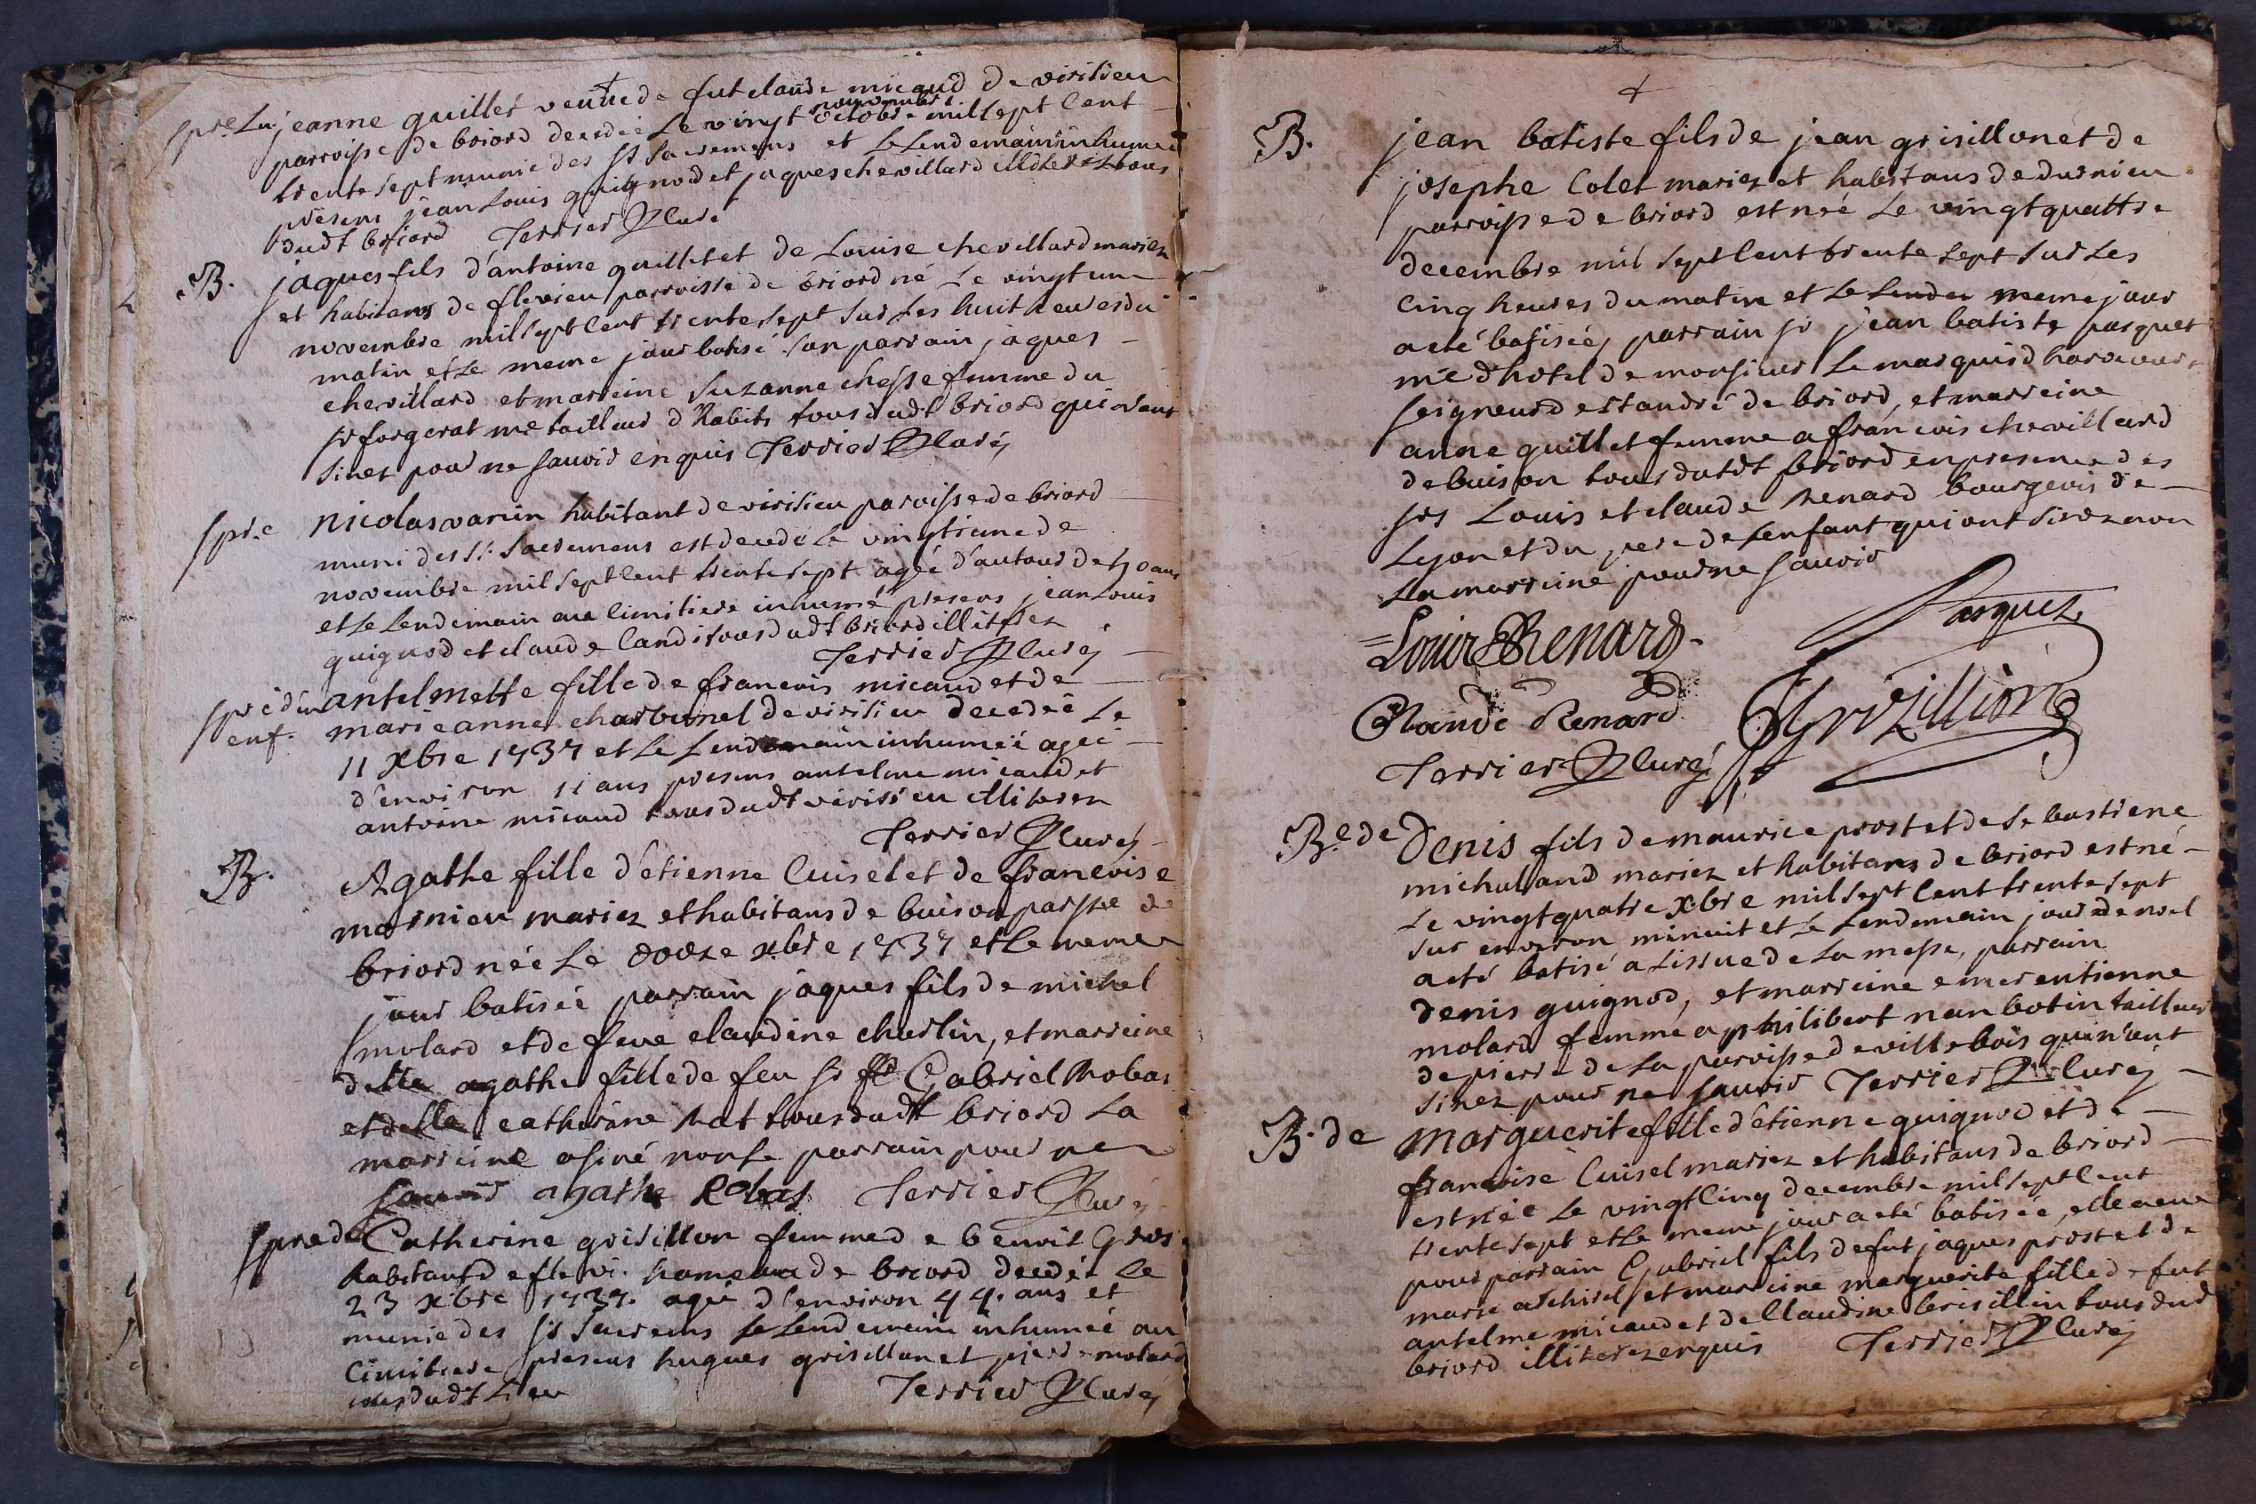 jeanne guillet veuve de fut claude micaud de virilieu
parroisse de briord decedée Le vingt octobre mil sept Cent
novembre
trente sept munie des sts sacremens et Le Lendemain inhumée
presens jean Louis guignod et jaques chevillard illiterez tous
dudt briord Terrier Curé
B. jaques fils d'antoine guillet et de Louise chevillard mariez
et habitans de flevieu parroisse de briord né Le vingt un
novembre mil sept Cent trente sept sur Les huit heures du
matin et Le meme jour batisé son parrain jaques
chevillard et marreine Suzanne chesse femme du
sr forgerat me tailleur d'habits tous dudt briord qui n'ont
sinez pour ne savoir enquis Terrier Curé
spre nicolas varrin habitant de virilieu paroisse de briord
muni des sts sacremens est decedé Le vingtieme de
novembre mil sept Cent trente sept agée d'autour de 70 ans
et Le Lendemain au Cimitiere inhumé presens jean Louis
guignod et claude tous dudt briord illiterez
Terrier Curé
spre d'un enf. antelmette fille de francois micaud et de
marie anne charbonel de virilieu decedée Le
11 Xbre 1737 et Le Lendemain inhumeé ageé
d'environ 11 ans presens antelme micaud et
antoine micaud tous dudt virilieu illiterez
Terrier Curé
B. Agathe fille d'etienne Cuisel et de francoise
marnieu mariez et habitans de buison parsse de
briord née Le douze xbre 1737 et Le meme
jour batisée parrain jaques fils de michel
molard et de feue claudine charlin, et marreine
delle agathe fille de feu sr Gabriel Robas
et delle catherine tous dudt briord La
marreine a siné non Le parrain pour ne
savoir agathe Robas Terrier Curé
spre de Catherine grisillon femme de benoit Gros
habitant de flevi. hameau de briord decedée Le
23 xbre 1737. agée d'environ 44. ans et
munie des sts sacremens Le Lendemain inhumeé au
Cimitiere presens hugues grisillon et pierre molard
tous dudt Lieu Terrier Curé
B. jean batiste fils de jean grisillon et de
josephe Colet mariez et habitans de dornieu
parroisse de briord est né Le vingt quattre
decembre mil sept Cent trente sept sur Les
Cinq heures du matin et Le meme jour
a eté batiseé, parrain sr jean batiste pasquet
me d'hotel de monsieur Le marquis d'harcourt
seigneur de st andré de briord, et marreine
anne guillet femme a francois chevillard
de buison tous dudt briord en presence des
srs Louis et claude Renard bourgeois de
Lyon et du pere de Lenfant qui ont sinez non
La marreine pour ne savoir
Louis Renard pasquet
Claude Renard J grizillion
Terrier Curé
B. de Denis fils de maurice prost et de sebastiene
michalland mariez et habitans de briord est né
Le vingt quatre xbre mil sept Cent trente sept
sur environ minuit et Le Lendemain jour de noel
a eté batisé a Lissue de La messe, parrain
denis guignod, et marreine emerentienne
molard femme a philibert nanbotin tailleur
de pierre de La paroisse de villebois qui n'ont
sinez pour ne savoir Terrier Curé
B. de Marguerite fille d'etienne guignod et de
francoise Cuisel mariez et habitans de briord
est née Le vingt Cinq decembre mil sept Cent
trente sept et Le meme jour a eté batisée, elle a eue
pour parrain Gabriel fils de fut jaques prost et de
marie et marreine marguerite fille de fut
antelme micaud et de Claudine Grisillin tous dud
briord illiterez enquis Terrier Curé